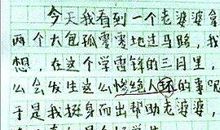 今天我看到一个老婆婆拿
两个大包孤零零地过马路,我
想,在这个学雷锋的三月里,
么会发生这么惨绝人寰的事呢
于是我挺身而出帮助老婆婆,